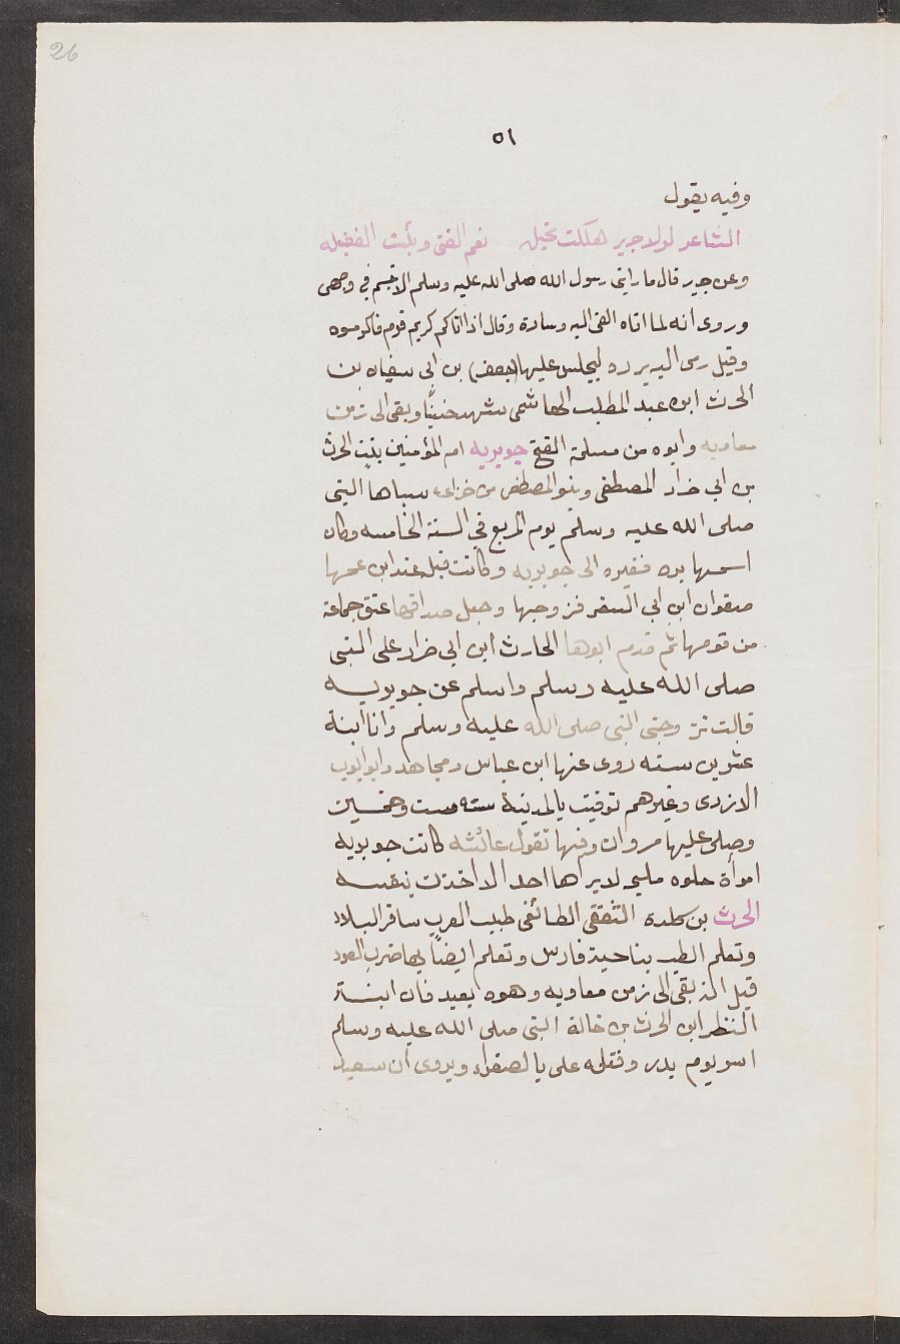 26
٥١
وفيه يقول
الشاعر لولا جرير هلكت بجيله نعم الفتى وبئست القبيله
وعن جرير قال ما راني رسول الله صلى الله عليه وسلم الا تبسم في وجهى
وروى انه لما اتاه القى اليه وسادة وقال اذا اتاكم كريم قوم فاكرموه
وقيل رمى اليه برده ليجلس عليها (جعفر) بن ابى سفيان بن
الحرث ابن عبد المطلب الهاشمى شهد حنينًا وبقى الى زمن
معاويه وابوه من مسلمة الفتح جويريه ام المؤمنين بنت الحرث
بن ابي ضرار المصطلقى وبنو المصطلق من خزاعه سباها النبى
صلى الله عليه وسلم يوم المريع في السنة الخامسه وكان
اسمها بره فغيره الى جويريه وكانت قبل عند ابن عمها
صفوان ابن ابي السفر فزوجها وجعل صداقها عتق جماعة
من قومها ثم قدم ابوها الحارث ابن ابي ضرار على النبى
صلى الله عليه وسلم واسلم عن جويريه
قالت تزوجنى النبى صلى الله عليه وسلم وانا ابنة
عشرين سنه روى عنها ابن عباس ومجاهد وابو ايوب
الازدى وغيرهم توفيت بالمدينة سنه ست وخمسين
وصلى عليها مروان وفيها تقول عائشه كانت جويريه
امرأة حلوه مليحه لا يراها احد الا اخذت بنفسه
الحرث بن كلده الثقفى الطائفى طبيب العرب سافر البلاد
وتعلم الطب بناحية فارس وتعلم ايضًا بها ضرب العود
قيل انه بقى الى زمن معاويه وهوه بعيد فان ابنه
النظر ابن الحرث بن خالة النبى صلى الله عليه وسلم
اسر يوم بدر وقتله على بالصفراء ويروى ان سعيد